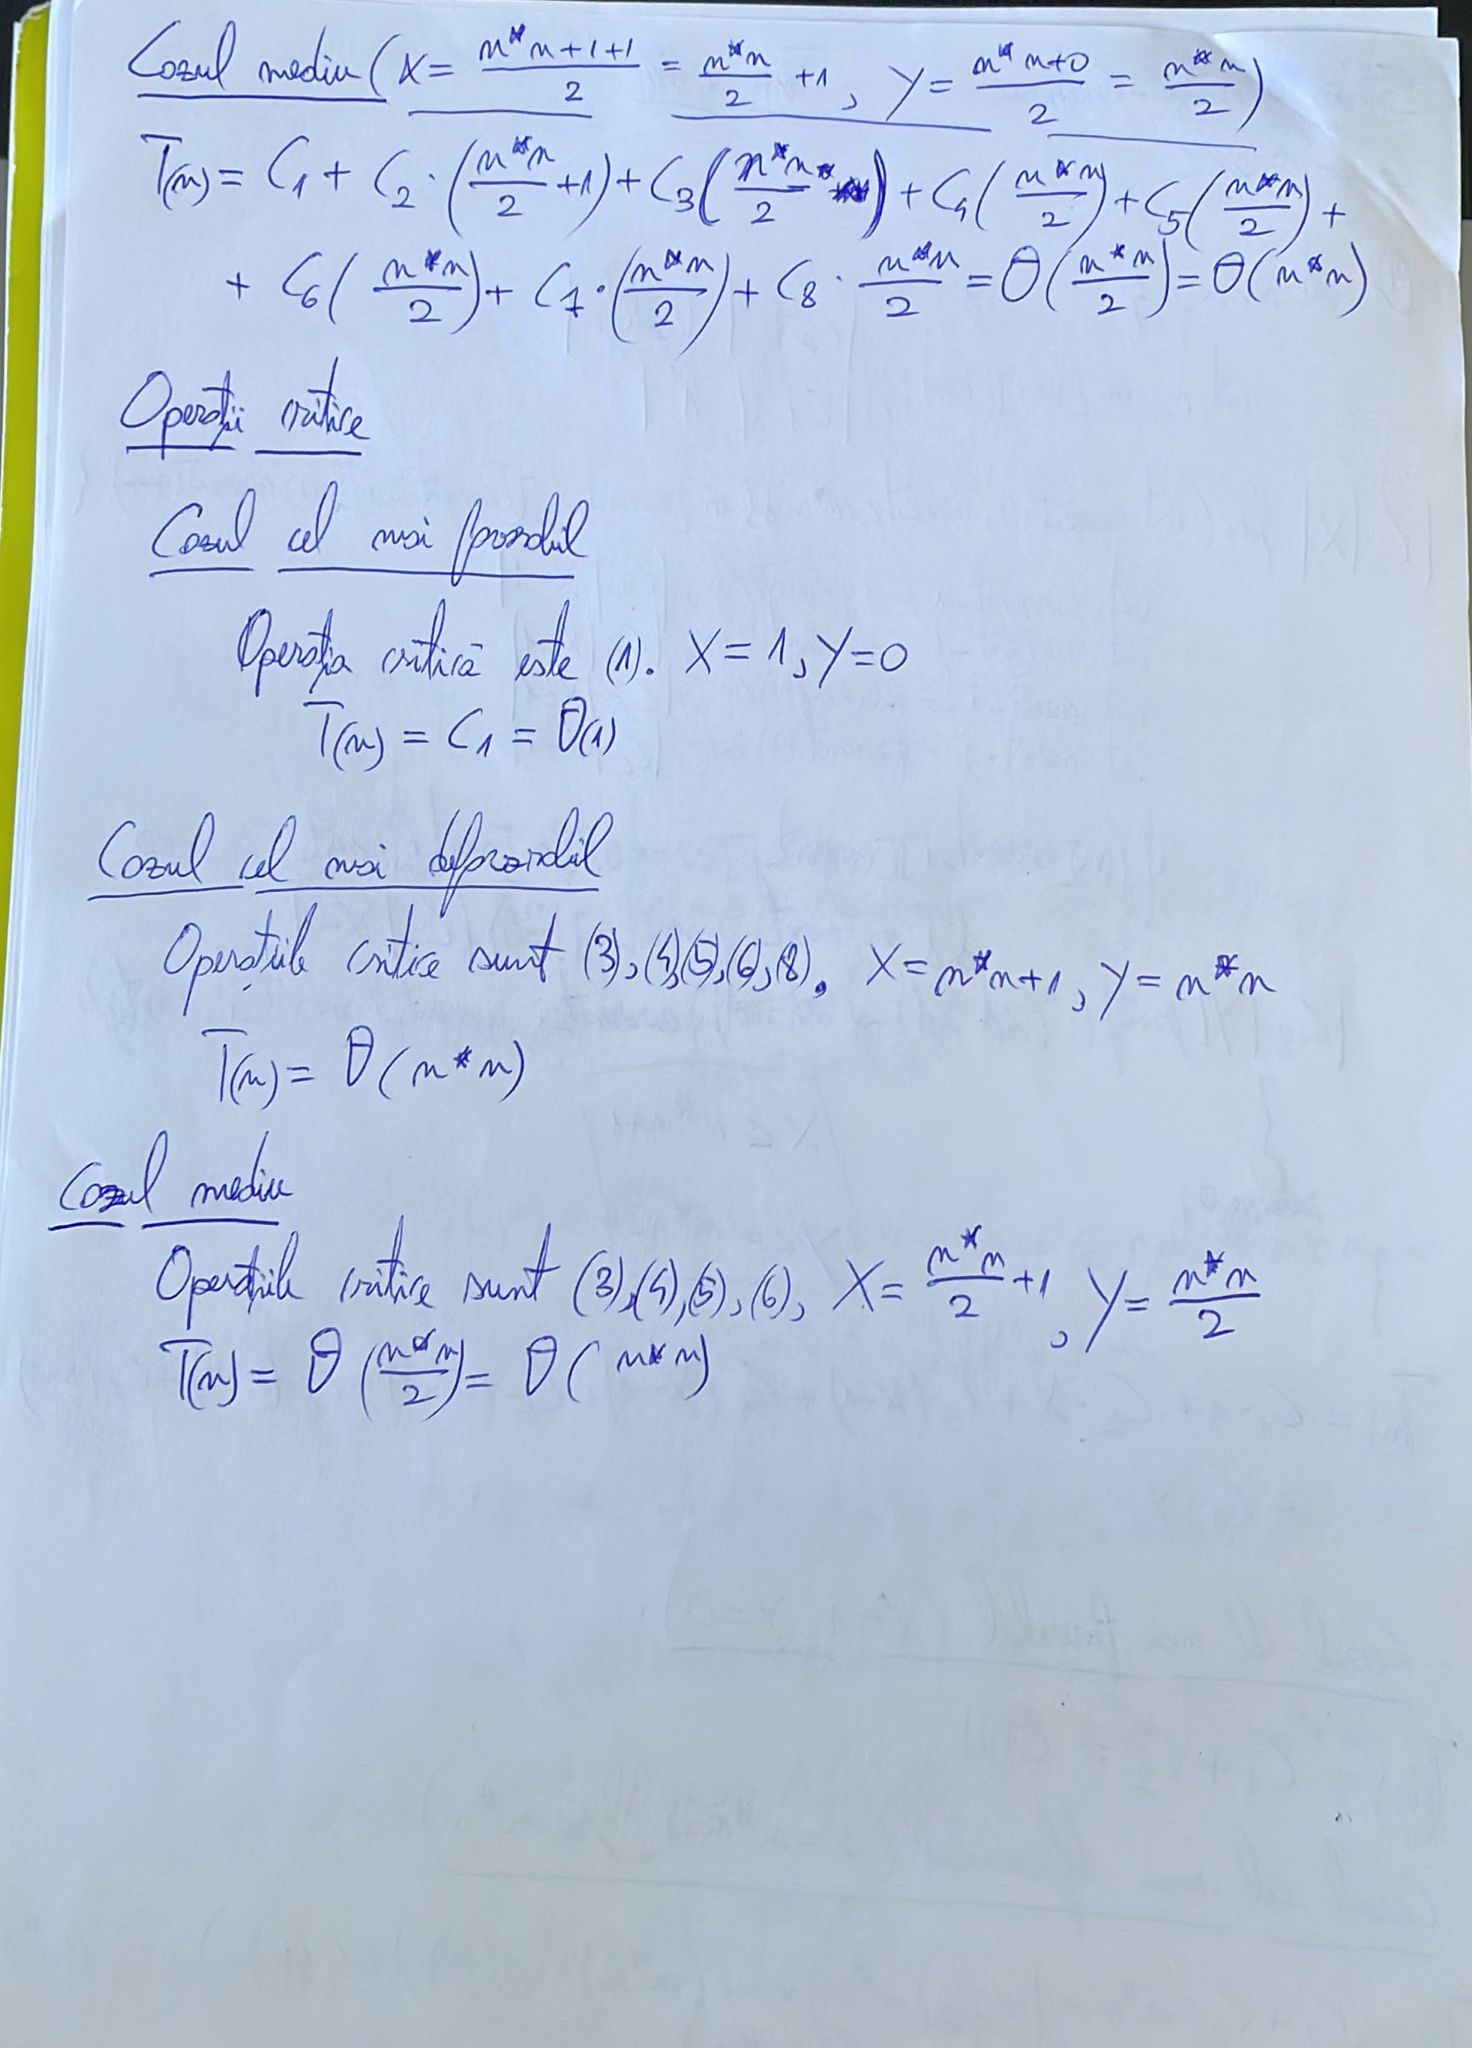 Cazul mediu (X = n*n+1+1/2 = n*n/2 +1, Y = n*n+0/2 = n*n/2)
T(n) = C1 + C2 · (n*n/2 +1) + C3 (n*n/2) + C4 (n*n/2) + C5 (n*n/2) +
+ C6 (n*n/2) + C7 · (n*n/2) + C8 · n*n/2 = θ(n*n/2) = θ(n*n)
Operații critice
Cazul cel mai favorabil
Operația critică este (1). X = 1, Y = 0
T(n) = C1 = θ(1)
Cazul cel mai defavorabil
Operațiile critice sunt (3), (4), (5), (6), (8). X = n*n+1, Y = n*n
T(n) = θ(n*n)
Cazul mediu
Operațiile critice sunt (3), (4), (5), (6), X = n*n/2 +1, Y = n*n/2
T(n) = θ(n*n/2) = θ(n*n)